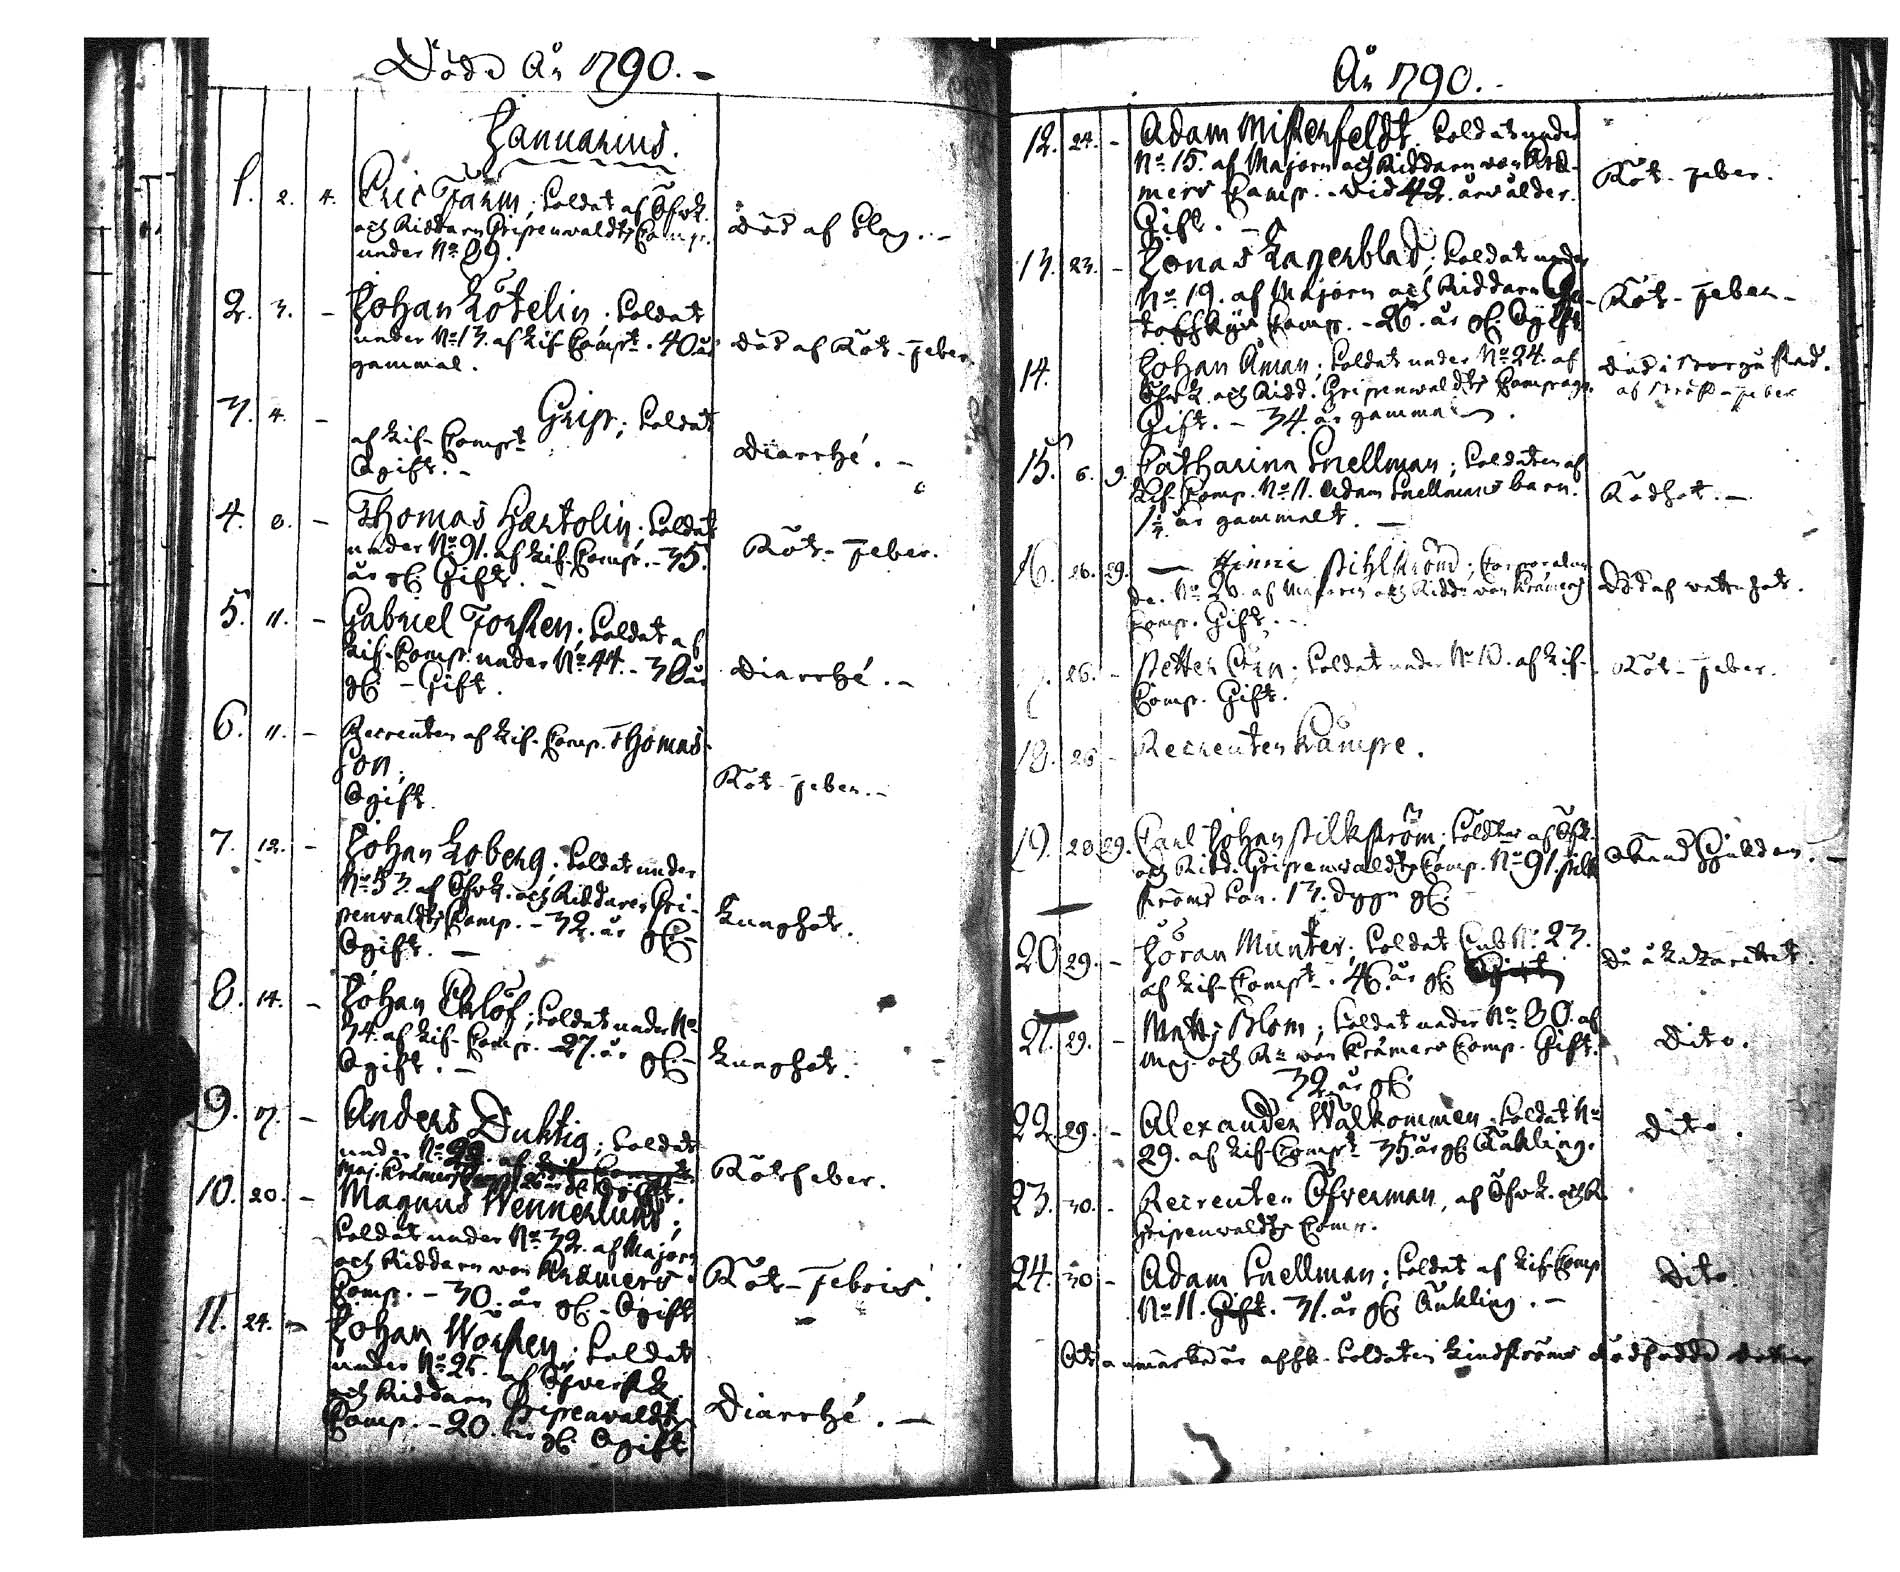 Döde År 1790.
Januarius.
1. 2. 4. Eric Farm; Soldat af Öfwk.
och Riddaren Gripenwaldts Comp.
under No 89.
död af Slag.
2. 3. - Johan Lötelin; Soldat
under No 13. af Lif-Compt. 40 år
gammal.
död af Röt-feber
3. 4. - Grip; Soldat
af Lif-Compt
Ogift. -
Diarrhé. -
4. 8. - Thomas Hertolin; Soldat
under No 91. af Lif-Comp. - 35.
år gl. Gift. -
Röt-feber.
5. 11. - Gabriel Forsten; Soldat af
Lif-Comp. under No 44. - 38 år
gl. - Gift.
Diarrhé. -
6. 11. - Recreuten af Lif-Comp. Thomas-
son;
Ogift.
Röt-feber. -
7. 12. - Johan Loberg; Soldat under
No 53. af Öfwk. och Riddaren Gri-
penwaldts Comp. - 32. år gl. -
Ogift. -
Lungsot.
8. 14. - Johan Eklöf; Soldat under No
34. af Lif-Comp. - 27. år gl. -
Ogift. -
Lungsot.
9. 17. - Anders Duktig; Soldat
under No 22. af
Maj. Kræmers
Rötfeber.
10. 20. - Magnus Wennerlund;
Soldat under No 32. af Majorn
och Riddaren von Kræmers
Comp. - 30. år gl. - Ogift
Röt-Febris.
11. 24. - Johan Worsten; Soldat
under No 25. af Öfwerstk.
och Riddaren Gripenwaldts
Comp. - 20. år gl. Ogift
Diarrhé. -
År 1790.
12. 24. - Adam Misterfeldt; Soldat under
No 15. af Majorn och Riddaren von Kræ-
mers Comp. - wid 42. års ålder.
Gift. -
Röt-feber.
13. 23. - Jonas Lagerblad; Soldat under
No 19. af Majorn och Riddaren
Comp. - 26. år gl. Ogift
Röt-feber -
14. Johan Åman; Soldat under No 24. af
Öfwk. och Ridd. Gripenwaldts Compagn.
Gift. - 34. år gammal.
död i Borgå stad.
af Bröst-feber
15. 6. 9. Catharina Snellman; Soldaten af
Lif-Comp. No 11. Adam Snellmans barn.
1 1/2 år gammalt. -
Rödsot. -
16. 26. 29. - Hinric Pihlström; Corporalen
No 26. af Majoren och Ridd. von Kræmers
Comp. Gift. -
Död af watusot.
26. - Petter Örn; Soldat under No 10. af Lif-
Comp. Gift.
Röt-feber.
18. 26 - Recreuten Kämpe.
19. 28 29. Carl Johan Silkström; Soldter af Öfk.
och Ridd. Gripenwaldts Comp. No 91. Silk
ströms Son. 13. dygn gl.
20 29. - Jöran Munter; Soldat Sub No 23.
af Lif-Compt. 46. år gl.
Du å Lazarettet.
21. 29. - Matts Blom; Soldat under No 80. af
Maj. och Rr von Kræmers Comp. Gift.
32. år gl.
Dito.
22. 29. - Alexander Wälkommen; Soldat No
29. af Lif-Compt 35 år gl. Änkling.
dito.
23. 30. - Recreuten Öfverman, af Öfwk. och R.
Gripenwaldts Comp.
24. 30 - Adam Snellman; Soldat af Lif-Comp
No 11. Gift. 31. år gl. Änkling. -
Dito.
Soldaten Lindströms dödfödda dotter